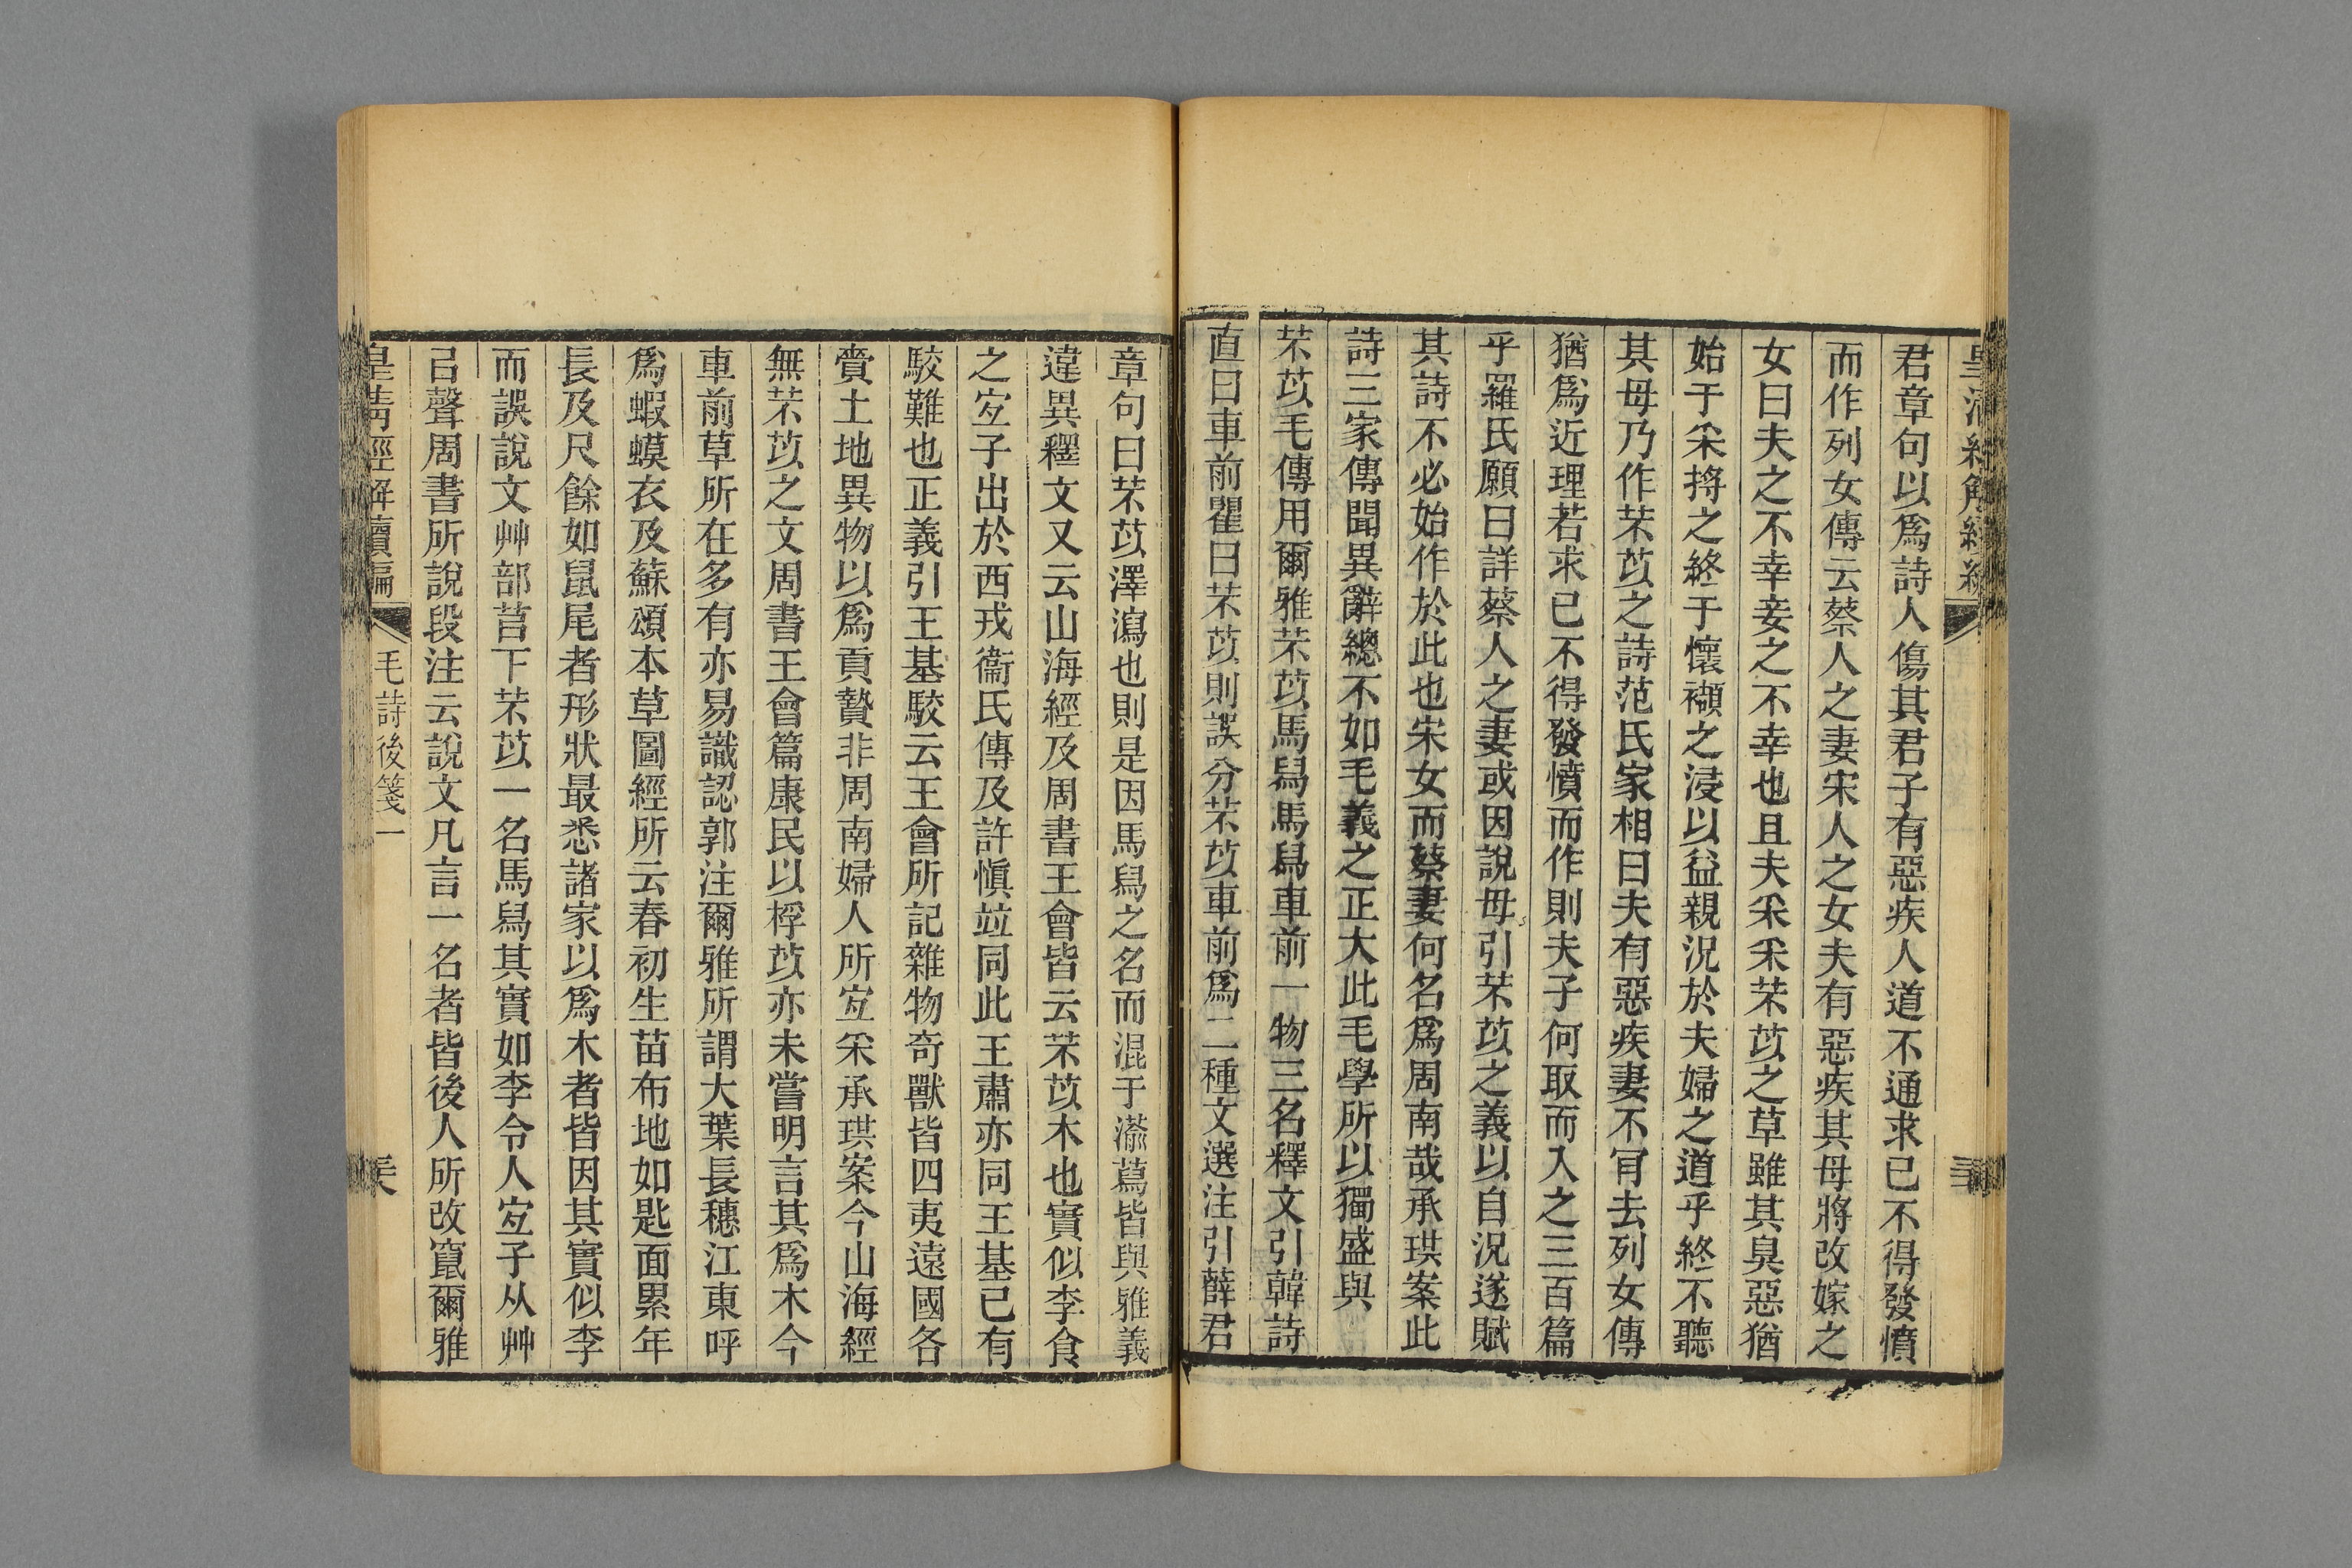 君章句以爲詩人傷其君子有惡疾人道不通求已不得發憤
而作列女傳云蔡人之妻宋人之女夫有惡疾其母將改嫁之
女曰夫之不幸妾之不幸也且夫采采芣苡之草雖其臭惡猶
始于采捋之終于懷襭之浸以益親況於夫婦之道乎終不聽
其母乃作芣苡之詩范氏家相曰夫有惡疾妻不肎去列女傳
猶爲近理若求已不得發憤而作則夫子何取而入之三百篇
乎羅氏願曰詳蔡人之妻或因說毋引芣苡之義以自況遂賦
其詩不必始作於此也宋女而蔡妻何名爲周南哉承珙案此
詩三家傳聞異辭總不如毛義之正大此毛學所以獨盛與
芣苡毛傳用爾雅芣苡馬舄馬舄車前一物三名釋文引韓詩
直曰車前瞿曰芣苡則誤分芣苡車前爲二種文選注引薛君
章句曰芣苡澤瀉也則是因馬舄之名而混于蕍蕮皆與雅義
違異釋文又云山海經及周書王會皆云芣苡木也實似李食
之宐子出於西戎衞氏傳及許愼竝同此王肅亦同王基已有
駮難也正義引王基駮云王會所記雜物奇獸皆四夷遠國各
賫土地異物以爲貢贄非周南婦人所宐采承珙案今山海經
無芣苡之文周書王會篇康民以桴苡亦未嘗明言其爲木今
車前草所在多有亦易識認郭注爾雅所謂大葉長穗江東呼
爲蝦蟆衣及蘇頌本草圖經所云春初生苗布地如匙面累年
長及尺餘如鼠尾者形狀最悉諸家以爲木者皆因其實似李
而誤說文艸部苢下芣苡一名馬舄其實如李令人宐子从艸
㠯聲周書所說段注云說文凡言一名者皆後人所改竄爾雅
皇淸經解續編
毛詩後箋一